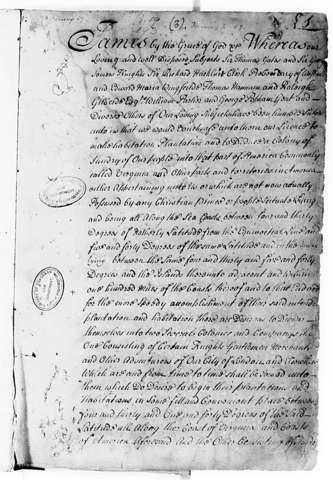 James by the Grace of God &c Whereas our
Loving and well Disposed Subjects Sir Thomas Gates and Sir George
Somers Knights Sir Richard Hackluit Clerk Prebendary of
and Edward Maria Wingfield Thomas Hannam and Raleigh
Gilbert Esqrs William Parker and George Popham Gent and
Diverse Others of Our Loving Subjects have been humble Suitors
unto us that we would vouchsafe unto them our Licence to
make habitation Plantation and to Deduce a Colony of
Sundry of Our People into that part of America Commonly
called Virginia and Other parts and territories in America
either Appertaining unto Us or which are not now actually
Possessed by any Christian Prince or People Scituate Lying
and being all Along the Sea Coasts between four and thirty
Degrees of Northerly Latitude from the Equinoctial Line and
five and forty Degrees of the same Latitude and in the
between the Same four and thirty and five and forty
Degrees and the Islands thereunto adjacent and within
one hundred miles of the Coasts thereof and to that End and
for the more Speedy accomplishment of their said intended
plantation and habitation there are Desirous to Divide
themselves into two Several Colonies and Companies the
One Consisting of Certain Knights Gentlemen Merchants
and Other Adventurers of Our City of London and Elsewhere
Which are and from time to time shall be Joined unto
them which Do Desire to begin their plantations and
habitations in some fitt and Convenient place between
four and thirty and One and forty Degrees of the Said
Latitude all Along the Coast of Virginia and Coasts
of America Aforesaid and the Other Consisting of